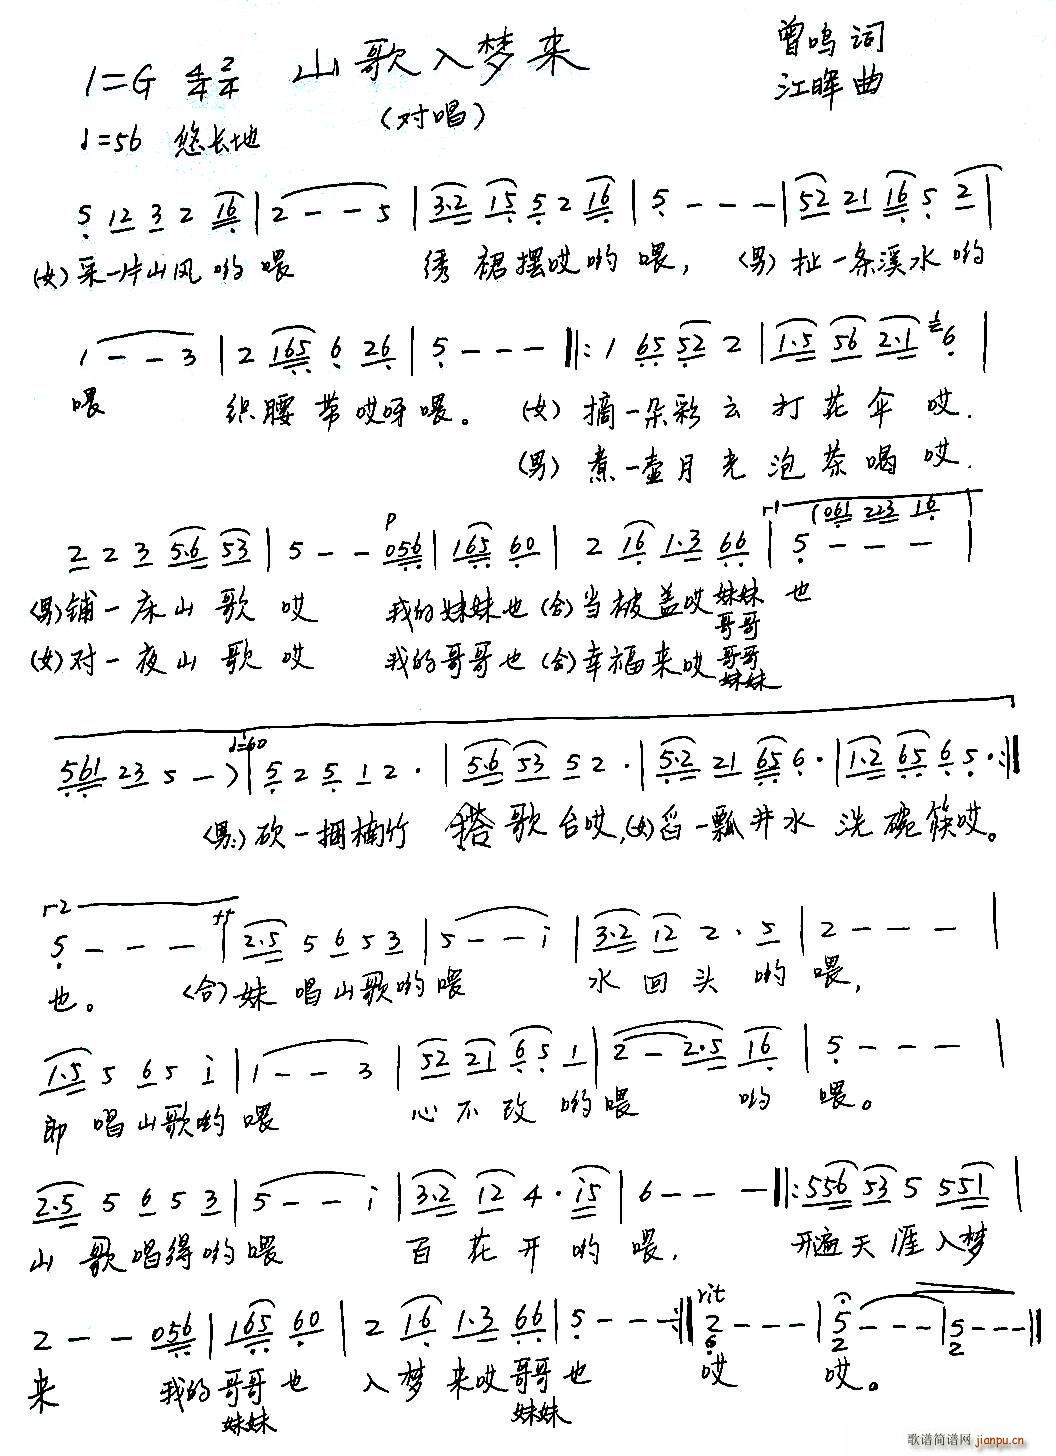 山歌入梦来
(对唱)
曾鸣 词
江晖 曲
1=G 4/4 2/4
♩=56 悠长地
5 12 3 2 16 | 2 - - 5 | 3·2 15 5 2 16 | 5 - - - | 52 21 16 5 2 |
(女)采一片山风哟喂 绣裙摆哎哟喂, (男)扯一条溪水哟
1 - - 3 | 2 165 6 26 | 5 - - - ‖: 1 65 52 2 | 1·5 56 2·1 6 |
喂 织腰带哎呀喂。 (女)摘一朵彩云打花伞哎.
(男)煮一壶月光泡茶喝哎.
p
(061 223 16
2 2 3 5·6 53 | 5 - - 056 | 165 60 | 2 16 1·3 66 | 5 - - - |
(男)铺一床山歌哎 我的妹妹也(合)当被盖哎妹妹也
哥哥
(女)对一夜山歌哎 我的哥哥也(合)幸福来哎哥哥
妹妹
♩=60
561 23 5 - ) | 5 2 5 1 2 · | 5·6 53 5 2 · | 5·2 21 65 6 · | 1·2 65 6 5 · :‖
(男)砍一捆楠竹 搭歌台哎,(女)舀一瓢井水洗碗筷哎。
2
5 - - - | 2·5 5 6 5 3 | 5 - - i | 3·2 12 2 · 5 | 2 - - - |
也。 (合)妹唱山歌哟喂 水回头哟喂,
1·5 5 6 5 i | 1 - - 3 | 52 21 6 5 1 | 2 - 2·5 16 | 5 - - - |
郎唱山歌哟喂 心不改哟喂 哟喂。
2·5 5 6 5 3 | 5 - - i | 3·2 12 4 · i5 | 6 - - - ‖: 556 53 5 551 |
山歌唱得哟喂 百花开哟喂, 开遍天涯入梦
rit
2 - - 056 | 165 60 | 2 16 1·3 66 | 5 - - - :‖ 2 - - - | 5 - - - | 5 - - - ‖
6 2 2
来 我的哥哥也 入梦来哎哥哥也 哎 哎。
妹妹 妹妹
歌谱简谱网
jianpu.cn